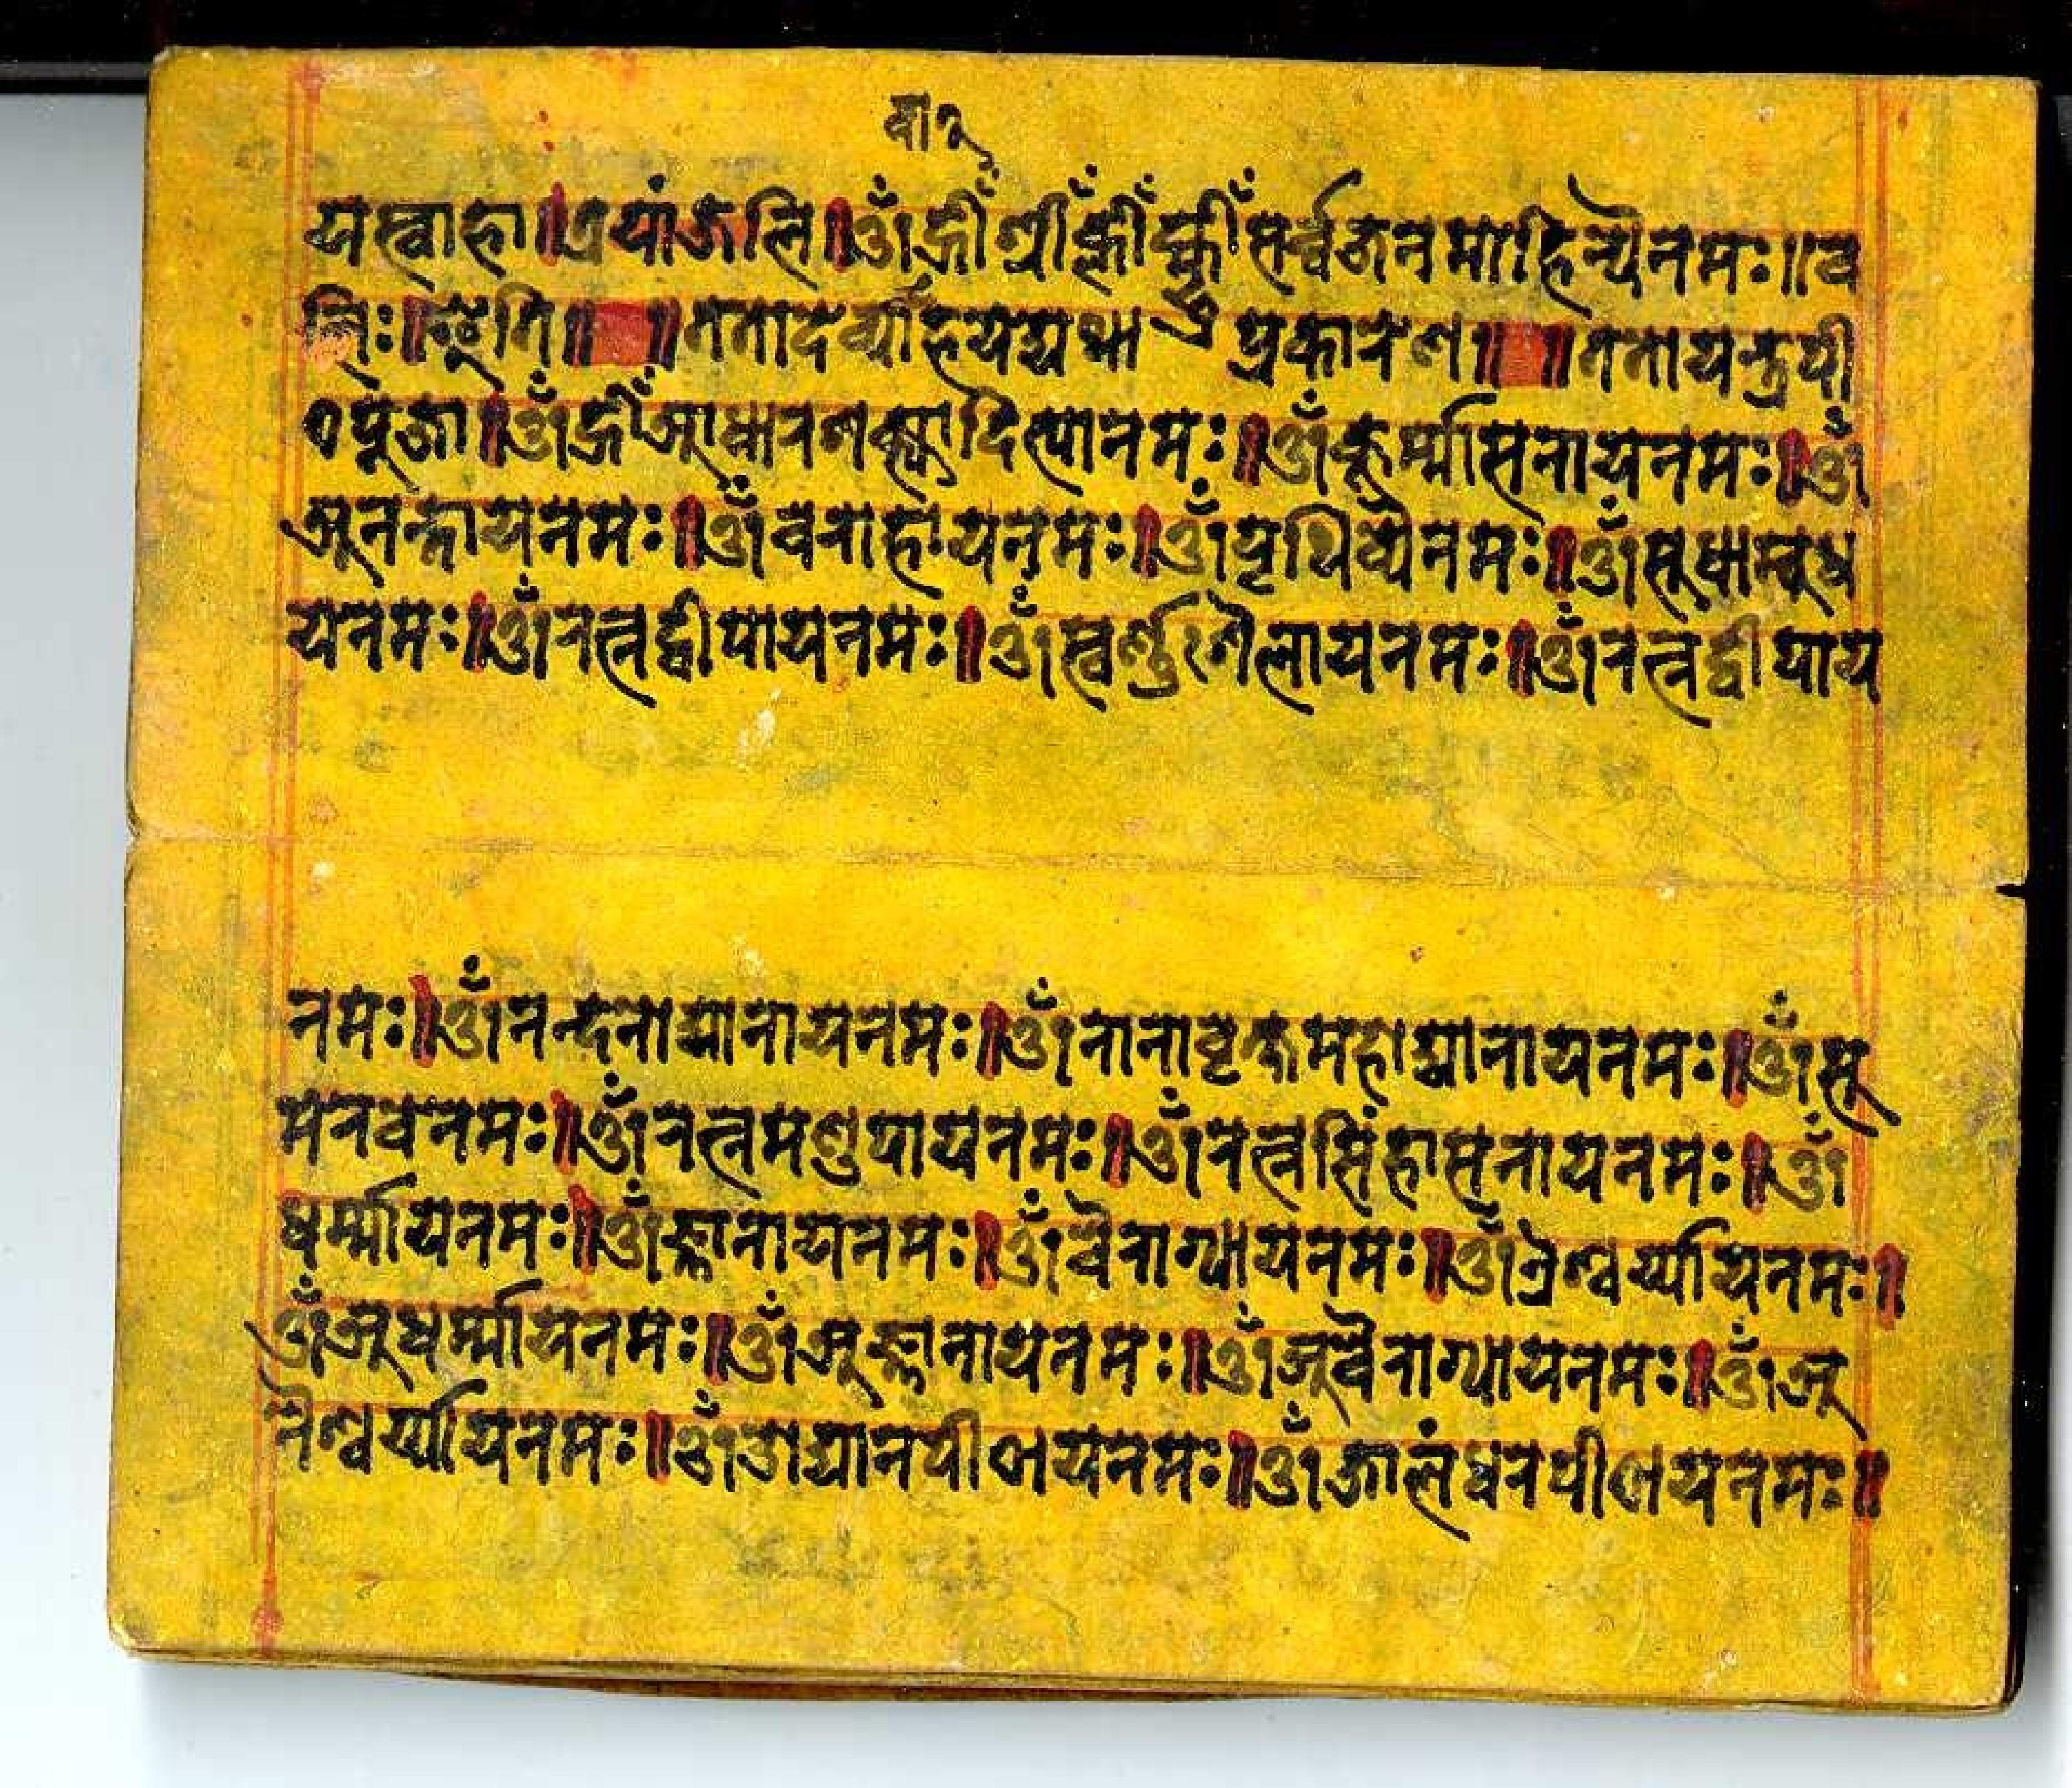 वा२
यस्वाहा॥त्रयांजलि॥ॐह्रीँश्रीँक्लीँम्लीँसर्व्वजनमोहिन्यैनमः॥व
लिः॥ इति॥ ॥ततोदर्व्यार्हययथा प्रकारेण॥ ॥ततोयन्त्रपी
ठपूजा॥ॐह्रीँआधारशक्त्यादित्योनमः॥ॐकूर्म्मासनायनमः॥ॐ
अनन्तायनमः॥ॐवराहायनमः॥ॐपृथिव्यैनमः॥ॐसुधाम्बुध
येनमः॥ॐरत्नद्वीपायनमः॥ॐस्वर्ण्णशैलायनमः॥ॐरत्नद्वीपाय
नमः॥ॐनन्दनोद्यानायनमः॥ॐनानावृक्षमहोद्यानायनमः॥ॐसु
मेरवेनमः॥ॐरत्नमण्डपायनमः॥ॐरत्नसिंहासनायनमः॥ॐ
धर्म्मायनमः॥ॐज्ञानायनमः॥ॐवैराग्यायनमः॥ॐऐश्वर्य्यायनमः॥
ॐअधर्म्मायनमः॥ॐअज्ञानायनमः॥ॐअवैराग्यायनमः॥ॐअ
नैश्वर्य्यायनमः॥ॐओद्यानपीठायनमः॥ॐजालंधरपीठायनमः॥